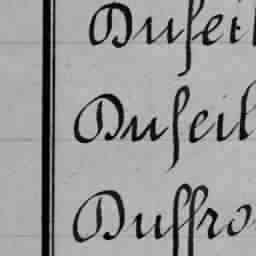 Dufeil
Dufeil
Duffro